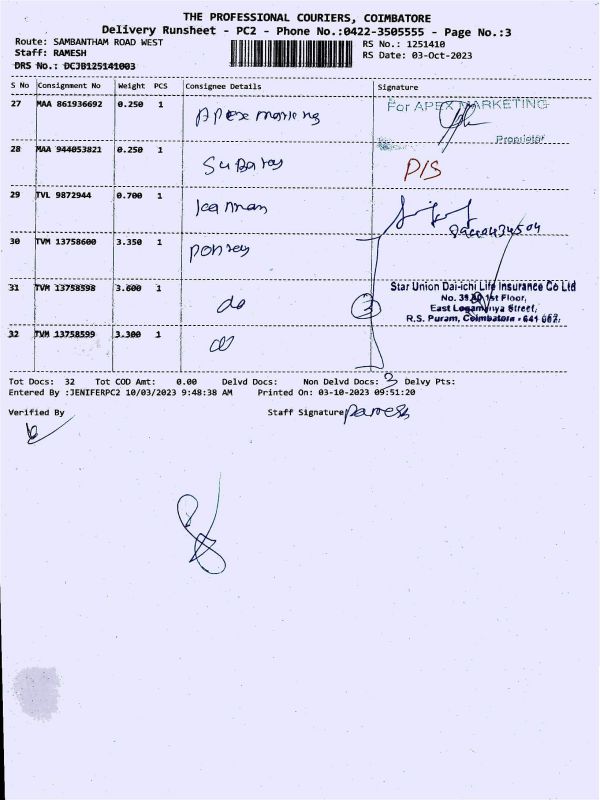 THE PROFESSIONAL COURIERS, COIMBATORE
Delivery Runsheet - PC2 - Phone No.:0422-3505555 - Page No.:3
Route: SAMBANTHAM ROAD WEST
RS No.: 1251410
Staff: RAMESH
RS Date: 03-Oct-2023
DRS No.: DCJB125141003
S No Consignment No Weight PCS Consignee Details Signature
27 MAA 861936692 0.250 1 For APEX MARKETING
Proprietor
28 MAA 944053821 0.250 1 P/S
29 TVL 9872944 0.700 1 Kannan
30 TVM 13758600 3.350 1
31 TVM 13758598 3.600 1 do 3
Star Union Dai-ichi Life Insurance Co Ltd
1st Floor,
East Street,
R.S. Puram, Coimbatore - 641 002.
32 TVM 13758599 3.300 1 do
Tot Docs: 32 Tot COD Amt: 0.00 Delvd Docs: Non Delvd Docs: 3 Delvy Pts:
Entered By :JENIFERPC2 10/03/2023 9:48:38 AM Printed On: 03-10-2023 09:51:20
Verified By Staff Signature Ramesh